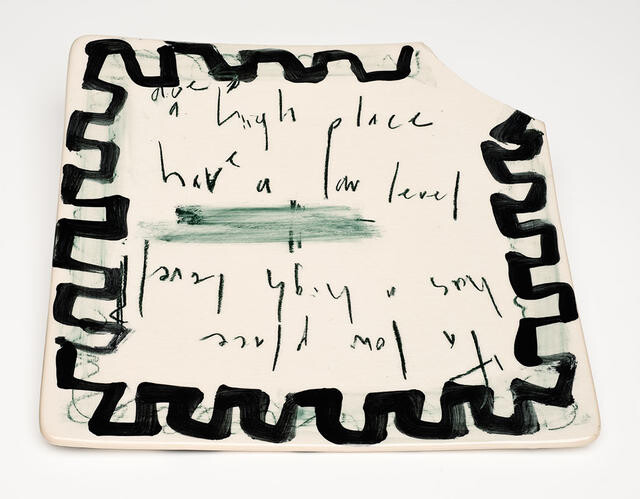 does a high place
have a low level
if a low place
has a high level